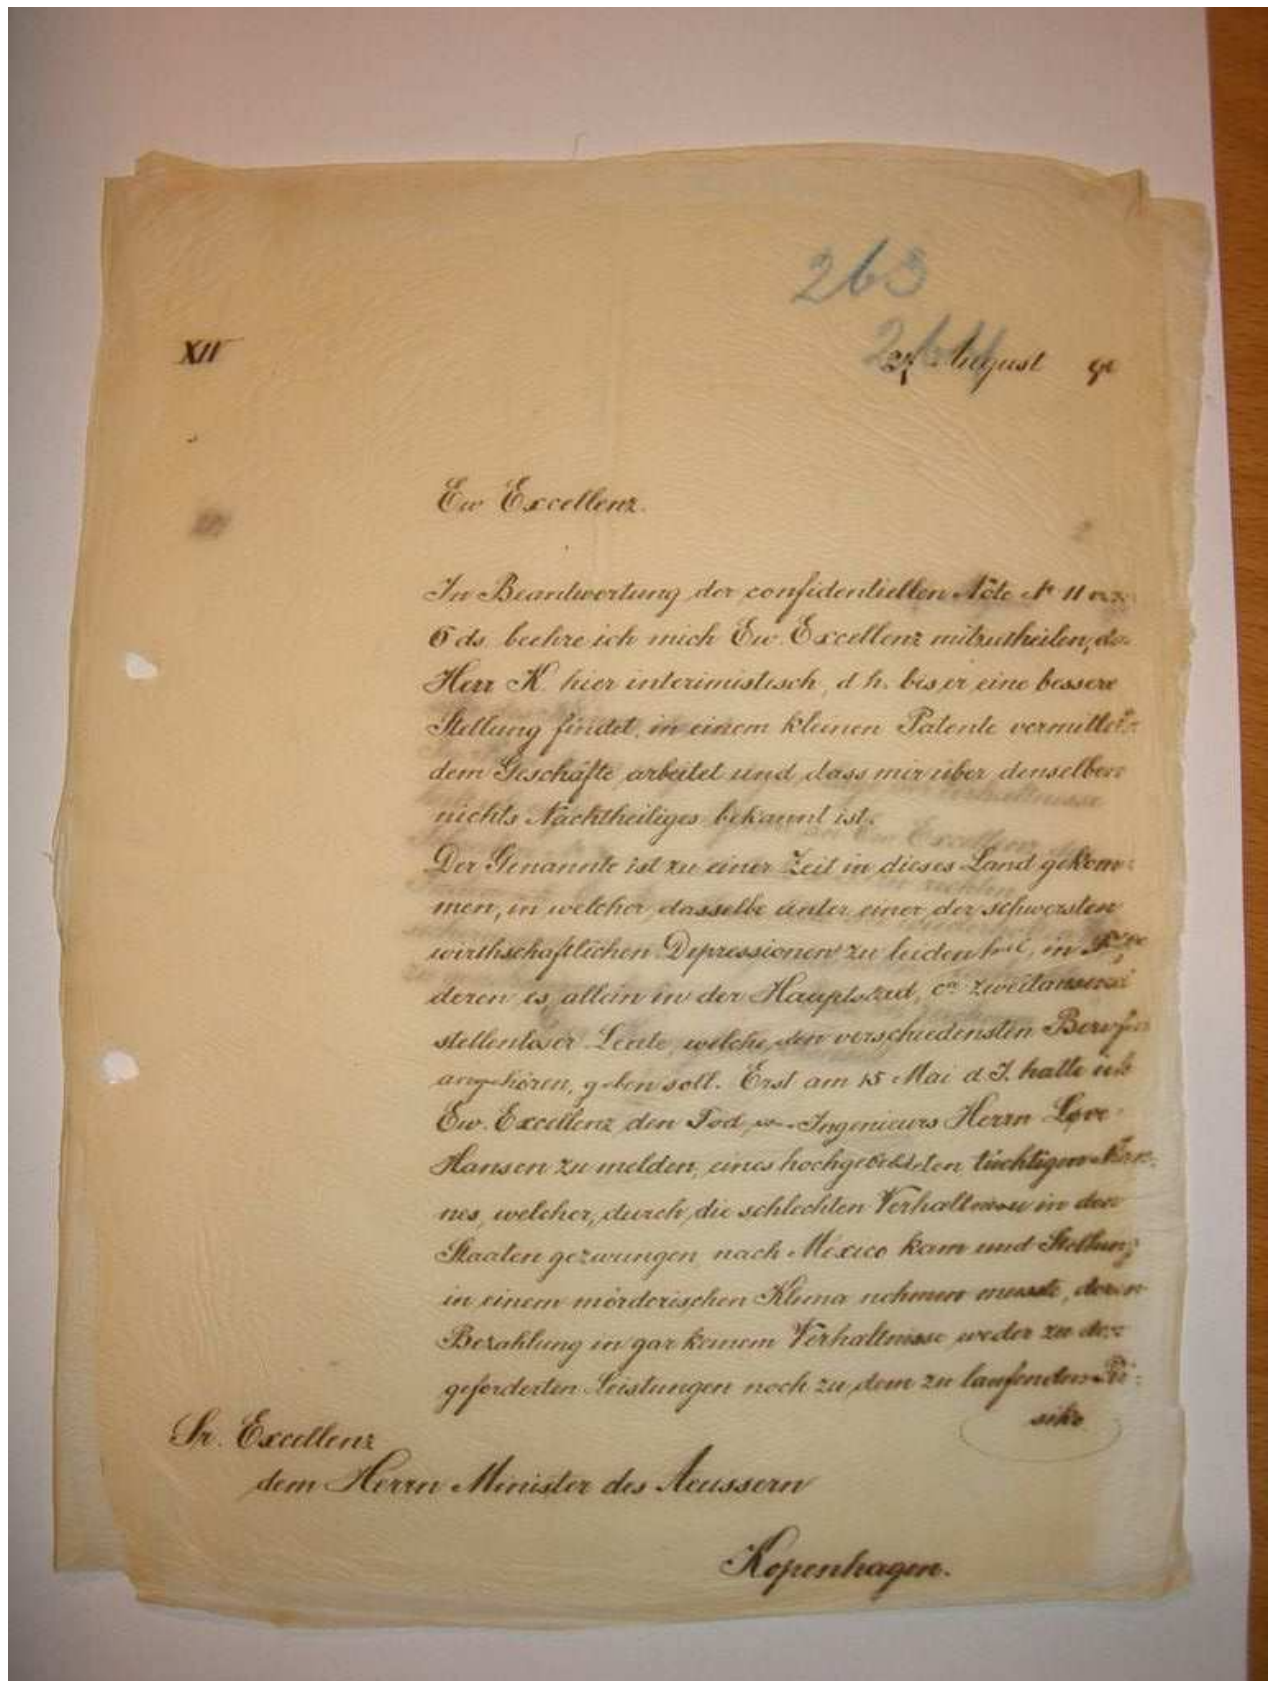 263
XII
August
Ew Excellenz.
In Beantwortung der confidentiellen Note No 11 vom
6 ds. beehre ich mich Ew. Excellenz mitzutheilen, das
Herr K. hier interimistisch, d h. bis er eine bessere
Stellung findet, in einem kleinen Patente vermitteln-
dem Geschäfte arbeitet und dass mir über denselben
nichts Nachtheiliges bekannt ist.
Der Genannte ist zu einer Zeit in dieses Land gekom-
men, in welcher dasselbe unter einer der schwersten
wirthschaftlichen Depressionen zu leiden hat, in
deren es allein in der Hauptstad, ca zweitausend
stellenloser Leute, welche den verschiedensten Berufen
angehören, geben soll. Erst am 15 Mai d. J. hatte ich
Ew. Excellenz den Tod Ingenieurs Herrn Love-
Hansen zu melden, eines hochgebildeten tüchtigen Man-
nes, welcher, durch die schlechten Verhältnisse in den
Staaten gezwungen nach Mexico kam und Stellung
in einem mörderischen Klima nehmen musste, deren
Bezahlung in gar keinem Verhältnisse weder zu den
geforderten Leistungen noch zu dem zu laufenden Ri-
siko
Sr. Excellenz
dem Herrn Minister des Aeussern
Kopenhagen.